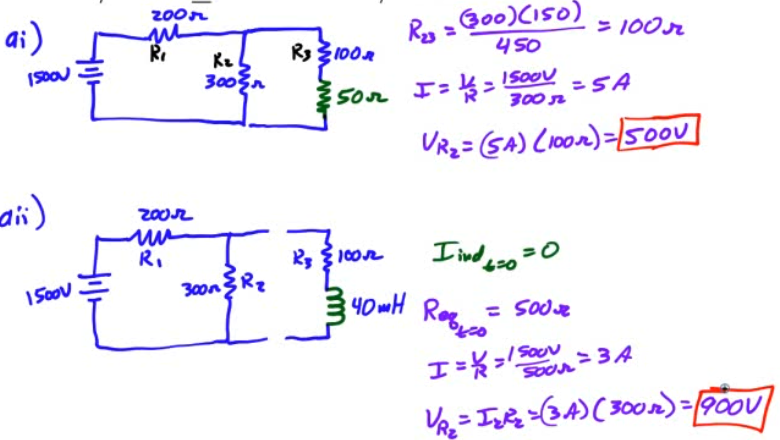 ai)
200Ω
R₁
1500V
R₂
300Ω
R₃
100Ω
50Ω
R₂₃ = (300)(150) / 450 = 100Ω
I = V/R = 1500V/300Ω = 5A
V_R₂ = (5A)(100Ω) = 500V
aii)
200Ω
R₁
1500V
300Ω
R₂
R₃
100Ω
40mH
I_ind t=0 = 0
R_eq t=0 = 500Ω
I = V/R = 1500V/500Ω = 3A
V_R₂ = I₂R₂ = (3A)(300Ω) = 900V